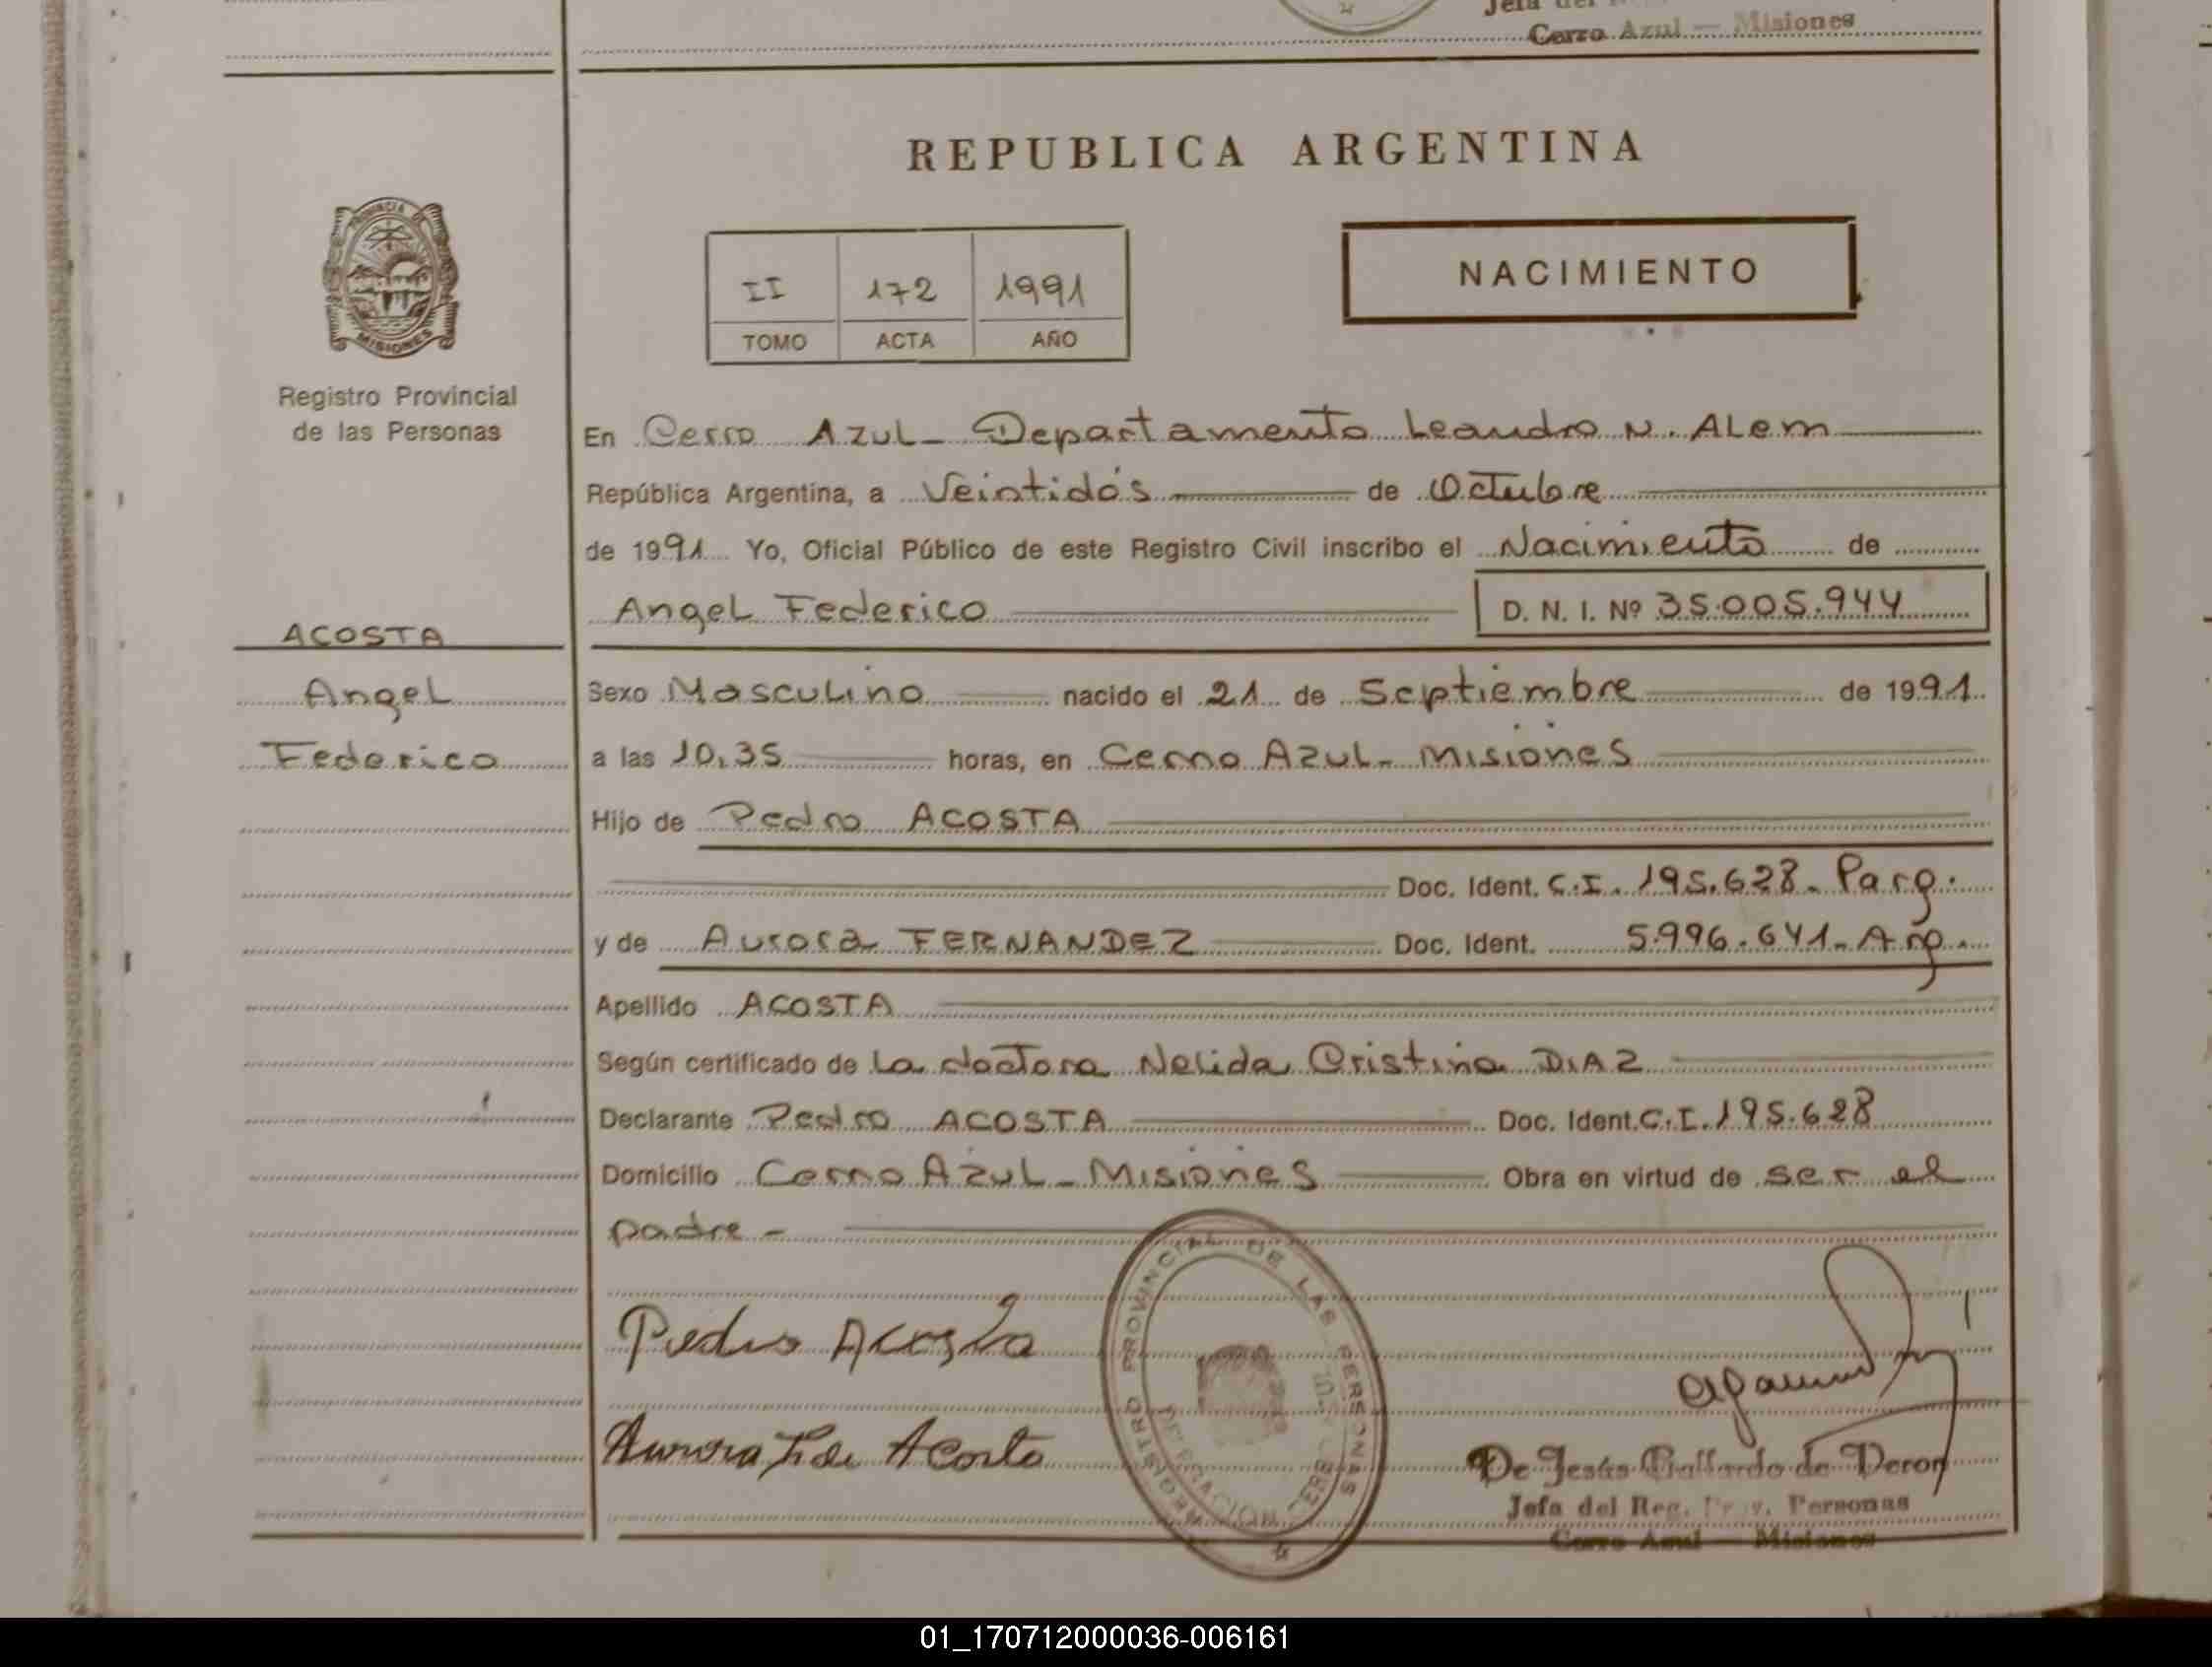 Jefa del
Cerro Azul — Misiones
REPUBLICA ARGENTINA
PROVINCIA DE
MISIONES
II 172 1991
TOMO ACTA AÑO
NACIMIENTO
Registro Provincial
de las Personas
En Cerro Azul - Departamento Leandro N. Alem
República Argentina, a Veintidós de Octubre
de 1991 Yo, Oficial Público de este Registro Civil inscribo el Nacimiento de
Angel Federico D. N. I. Nº 35.005.944
ACOSTA
Angel
Federico
Sexo Masculino nacido el 21 de Septiembre de 1991.
a las 10,35 horas, en Cerro Azul - Misiones
Hijo de Pedro ACOSTA
Doc. Ident. C.I. 195.628 - Parg.
y de Aurora FERNANDEZ Doc. Ident. 5.996.641 - Arg.
Apellido ACOSTA
Según certificado de La doctora Nelida Cristina DIAZ
Declarante Pedro ACOSTA Doc. Ident. C.I. 195.628
Domicilio Cerro Azul - Misiones Obra en virtud de ser el
padre -
Pedro Acosta
Aurora F. de Acosta
REGISTRO PROVINCIAL DE LAS PERSONAS
DELEGACION CERRO AZUL
De Jesús Gallardo de Deron
Jefa del Reg. Prov. Personas
Cerro Azul — Misiones
01_170712000036-006161